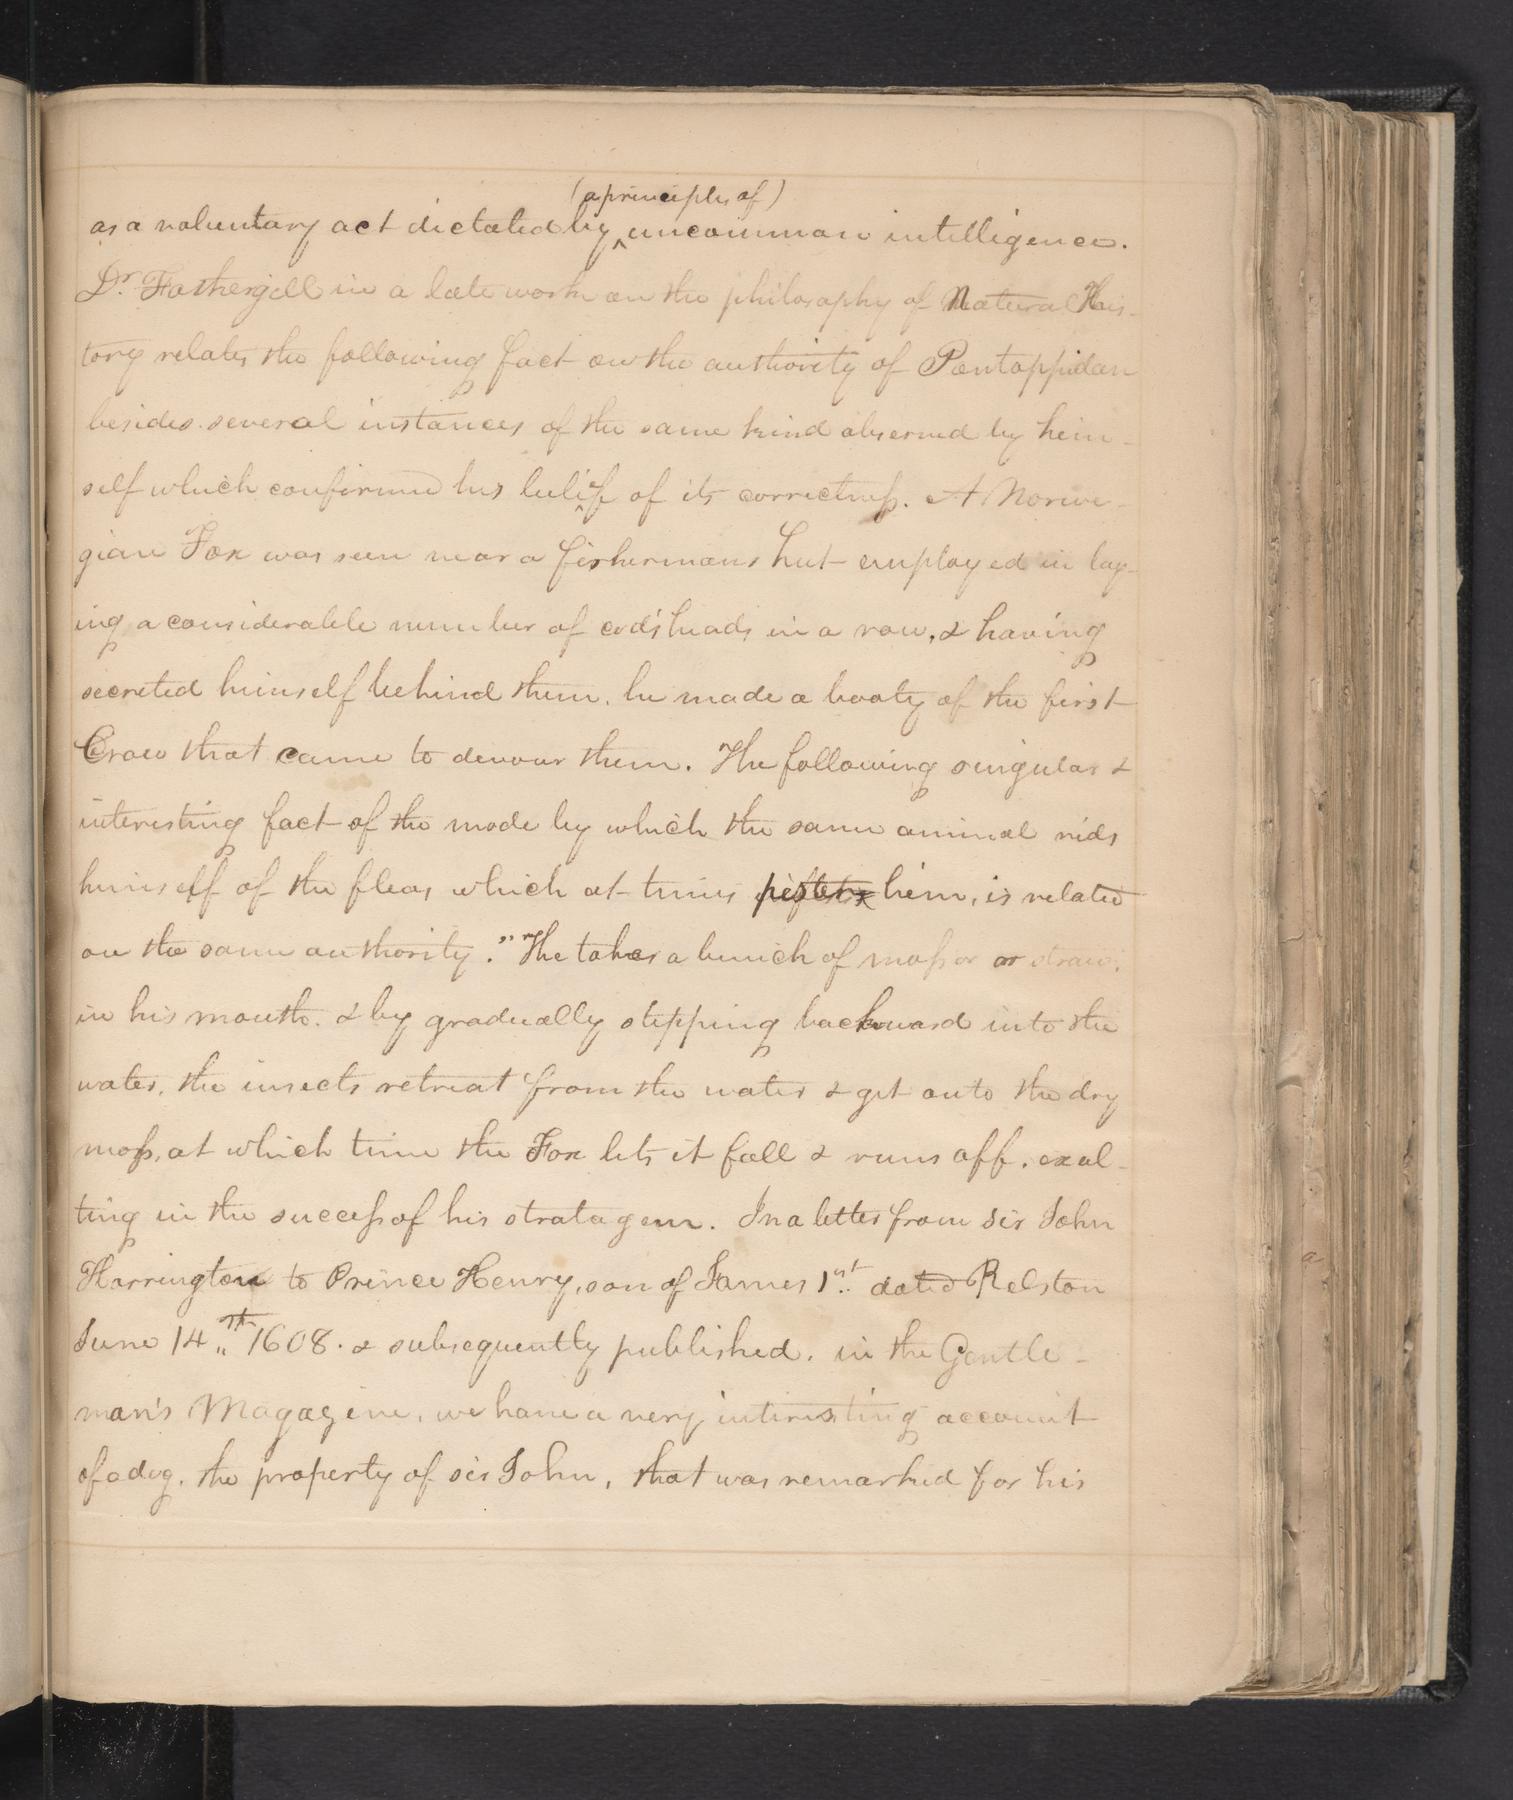 (a principle of)
as a voluntary act dictated by ^ uncommon intelligence.
Dr. Fothergill in a late work on the philosophy of Natural His-
tory relates the following fact on the authority of Pontoppidan
besides several instances of the same kind observed by him-
self which confirmed his belief of its correctness. A Norwe-
gian Fox was seen near a fishermans hut employed in lay-
ing a considerable number of cod's heads in a row, & having
secreted himself behind them, he made a booty of the first
Crow that came to devour them. The following singular &
interesting fact of the mode by which the same animal rids
himself of the fleas which at times him, is related
on the same authority. "He takes a bunch of moss or or straw,
in his mouth. & by gradually stepping backward into the
water, the insects retreat from the water & get onto the dry
moss, at which time the Fox lets it fall & runs off, exul-
ting in the success of his stratagem. In a letter from Sir John
Harrington to Prince Henry, son of James 1st. dated Kelston
June 14th 1608. & subsequently published, in the Gentle-
man's Magazine, we have a very interesting account
of a dog, the property of sir John, that was remarked for his